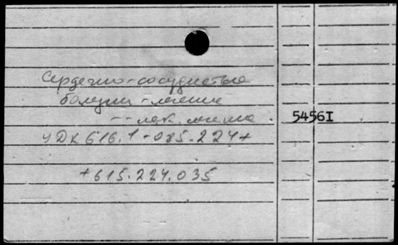 Сердечно-сосудистые
болезни - лечение
-- лек. лечение 5456I
УДК 616.1-085.224+
+615.224.035